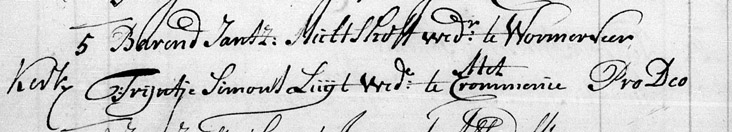 5 Barend Jantz: wedr: te Wormerveer
Met
Kerk Trijntje Simons Luijt wede: te Crommenie Pro Deo